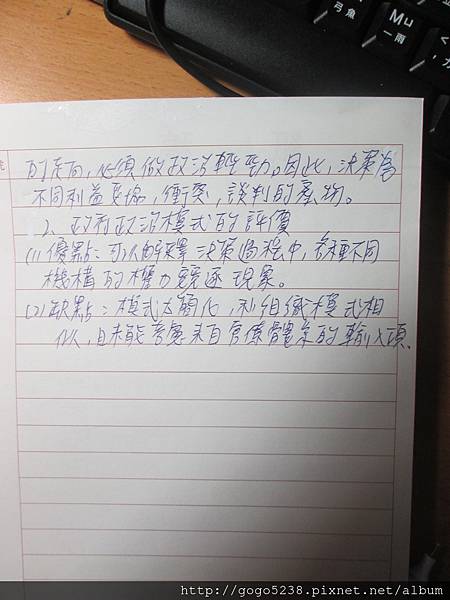 的走向，必須做政治輕動。因此，決策為
不同利益妥協，衝突，談判的產物。
2、政府政治模式的評價
(1)優點：可以解釋決策過程中，各種不同
機構的權力競逐現象。
(2)缺點：模式太簡化，和組織模式相
似，且未能考慮來自官僚體系的輸入項、
弓魚
M ㄩ
一兩
http://gogo5238.pixnet.net/album